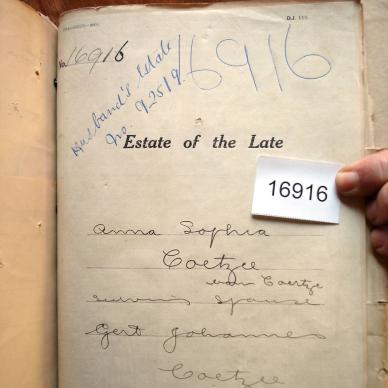 D.J. 110
No. 16916
16916
Husband's Estate
No. 92519
Estate of the Late
16916
Anna Sophia
Coetzee
van Coertze
surviving spouse
Gert Johannes
Coetzee